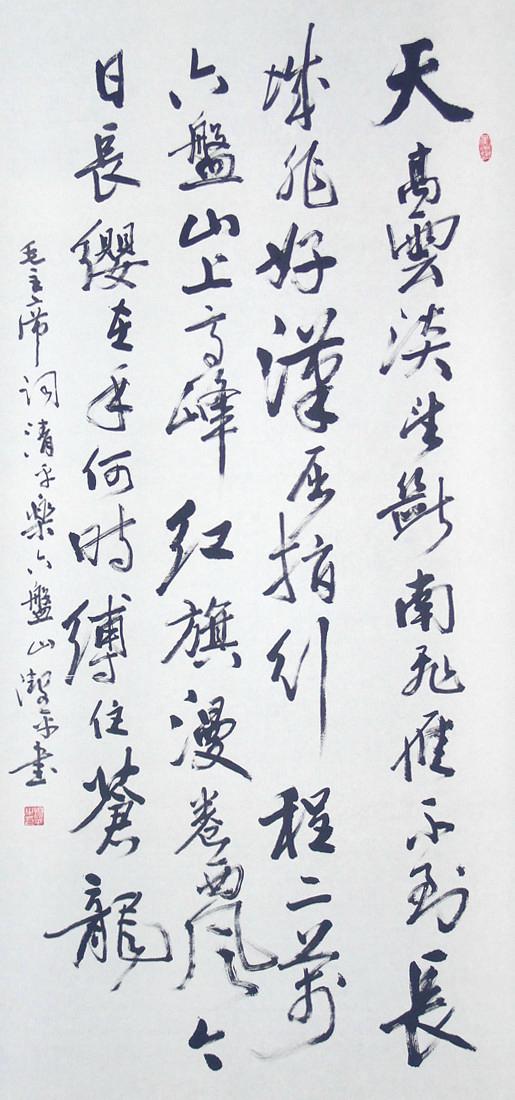 天高雲淡望斷南飛雁不到長
城非好漢屈指行程二萬
六盤山上高峰紅旗漫卷西風今
日長纓在手何時縛住蒼龍
毛主席詞清平樂六盤山書